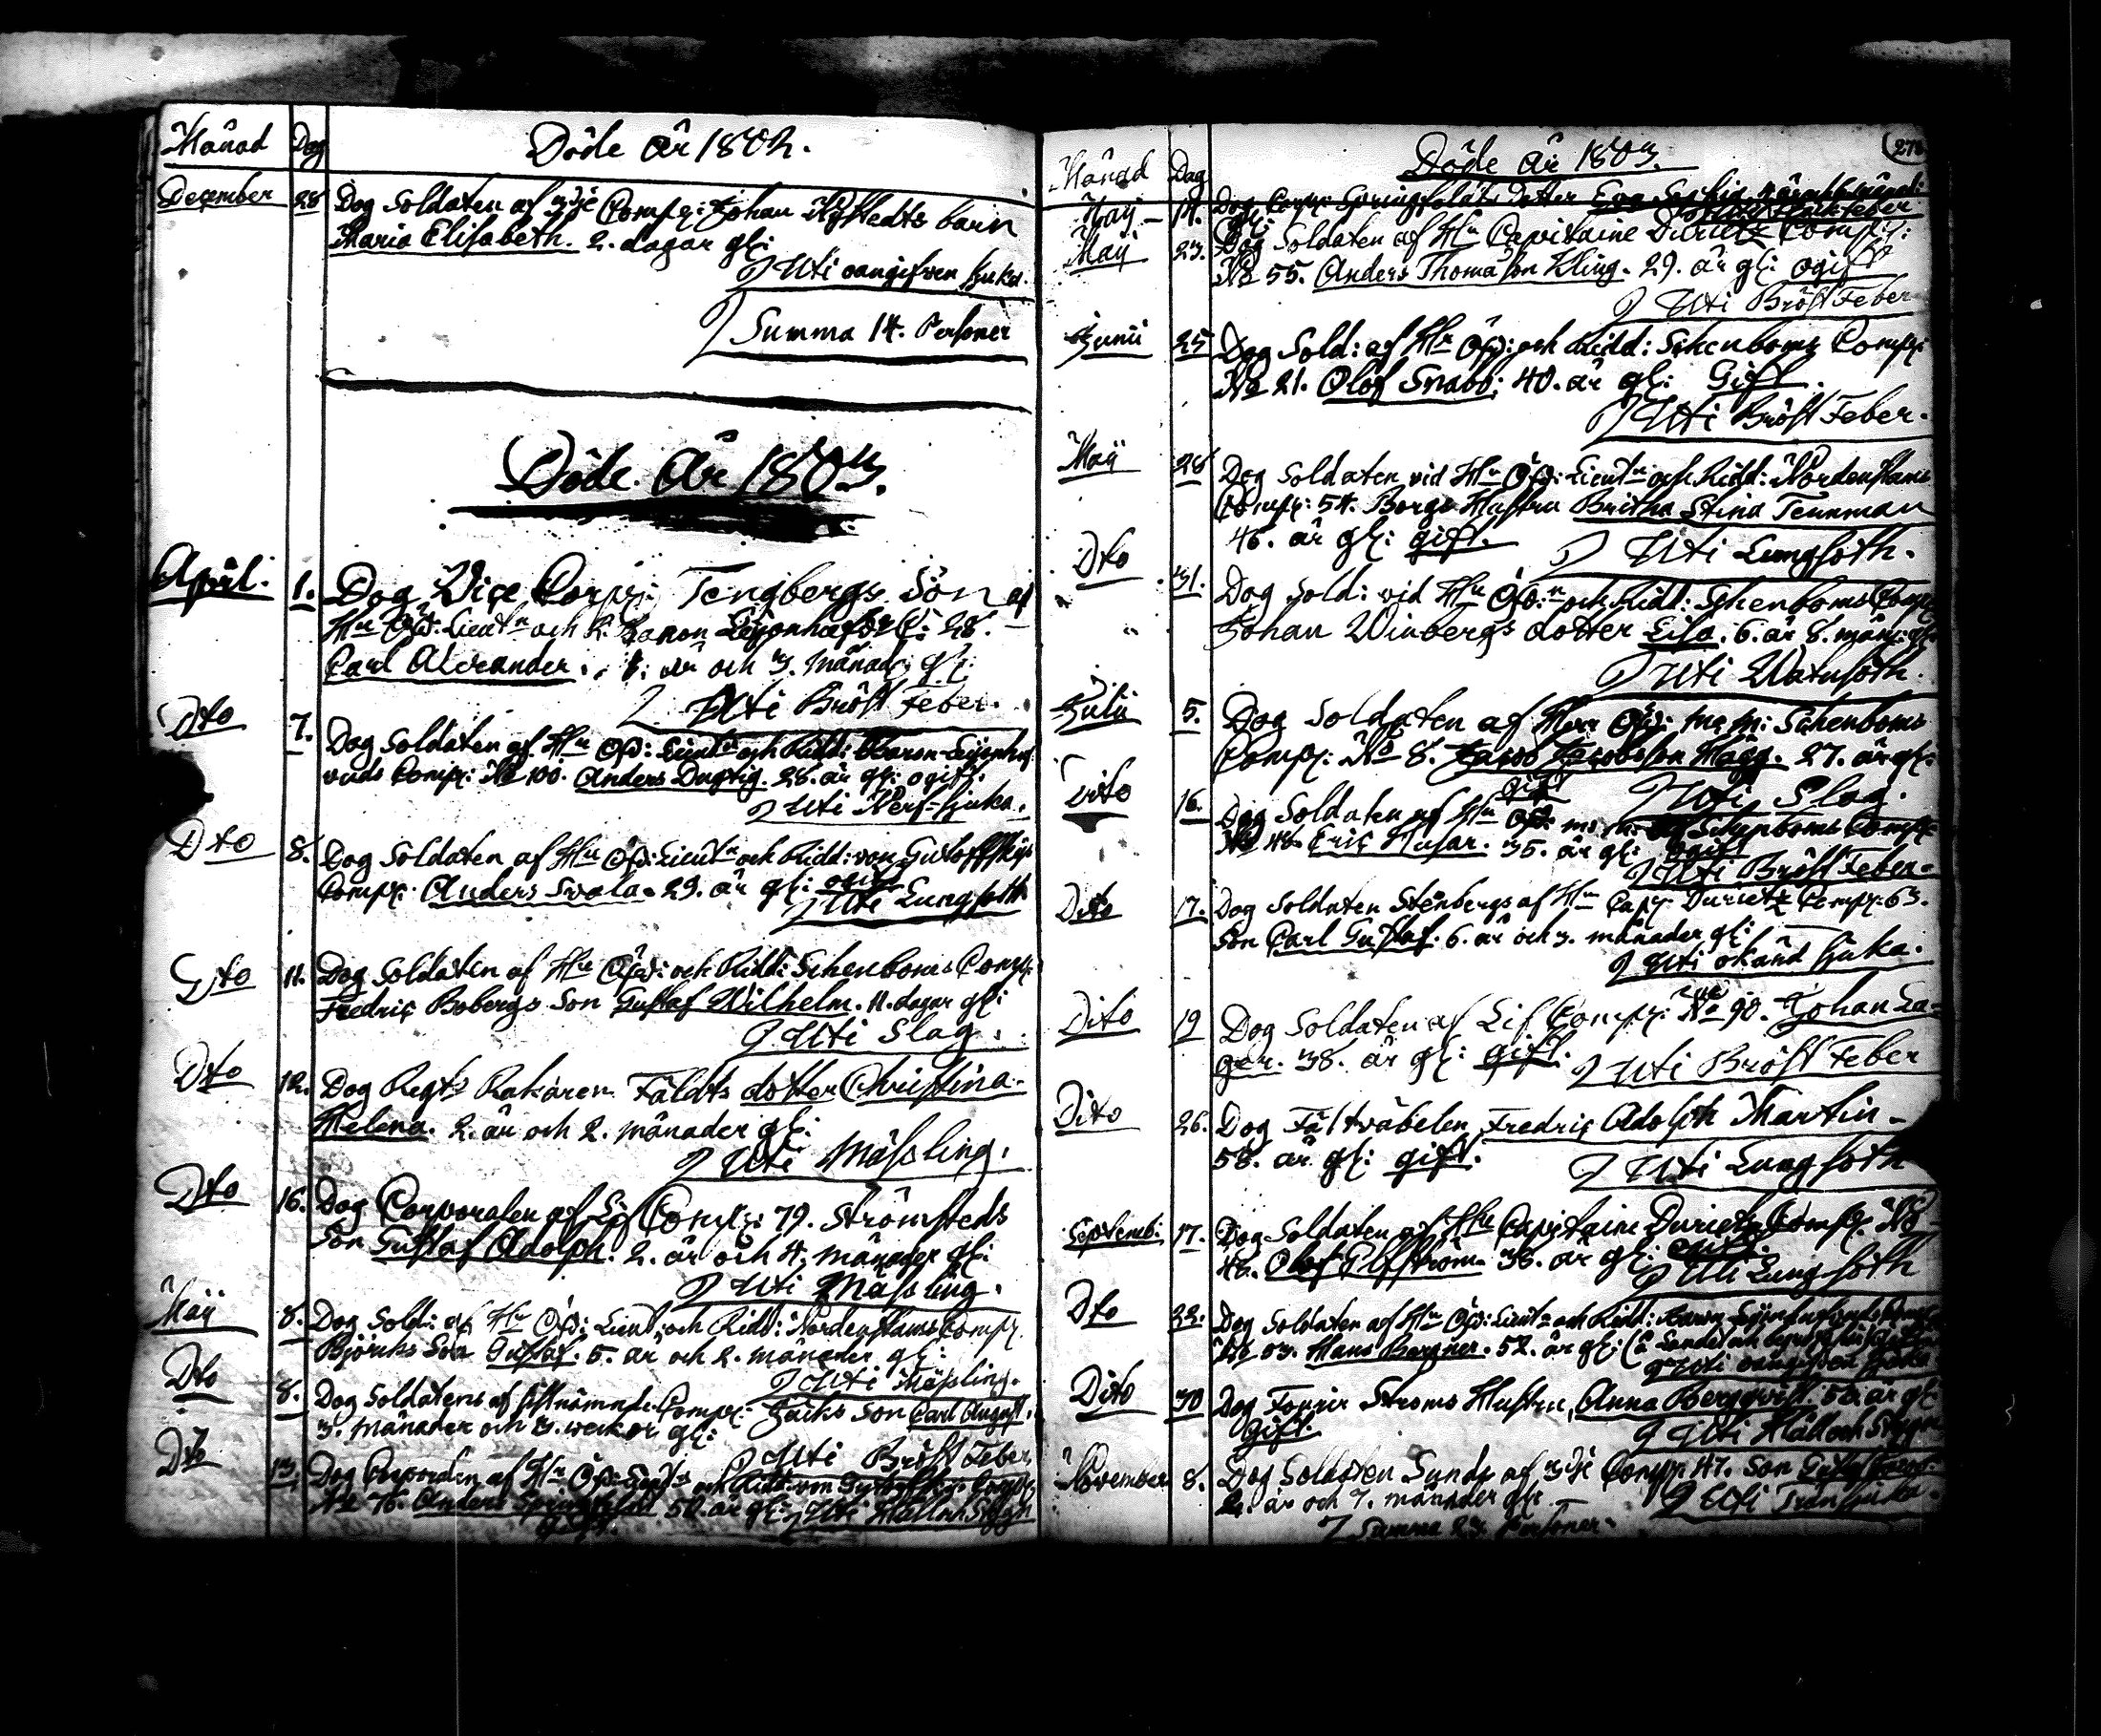 Månad Dag Döde år 1802.
December 28 Dog Soldaten af 3dje Comp: Johan Hofstedts barn
Maria Elisabeth. 2. dagar gl:
Uti oangifven sjuka.
Summa 14. Personer
Döde År 1803.
April. 1. Dog Vice Corp: Tengbergs Son af
Hr Öfw: Lieutn och R: Baron Leijonhufv C: 28.
Carl Alexander. 1. år och 3. månad: gl:
Uti Bröst Feber.
Dto 7. Dog Soldaten af Hr Öfw: Lieutn och Ridd: Baron Leijonhuf
vuds Comp: No 100. Anders Dugtig. 28. år gl: ogift.
Uti Nerf-sjuka.
Dto 8. Dog Soldaten af Hr Öfw: Lieutn och Ridd: von
Comp: Anders Svala. 29. år gl: ogift
Uti Lungsoth
Dto 11. Dog Soldaten af Hr Öfw: och Ridd: Schenboms Comp:
Fredric Bobergs Son Gustaf Wilhelm. 11. dagar gl:
Uti Slag.
Dto 12. Dog Regts Rakaren Fäldts dotter Christina-
Helena. 2. år och 2. månader gl:
Uti Mässling.
Dto 16. Dog Corporalen af Lif Comp: 79. Strömsteds
Son Gustaf Adolph. 2. år och 4. månader gl:
Uti Mässling.
Maij 8. Dog Sold: af Hr Öfw: Lieut: och Ridd: Nordenstams Comp:
Björks Son Gustaf. 5. år och 2. månader gl:
Uti Mässling.
Dto 8. Dog Soldatens af sistnämnde Comp: Son Carl August.
3. månader och 3. weckor gl:
Uti Bröst Feber
Dto 13. Dog Corporalen af Hr Öfw: Lieutn och Ridd: von Comp:
No 76. Anders 50. år gl: Uti Håll och Stygn
Gift.
Månad Dag Döde år 1803.
Maij 14. Dog Corp: Springfelds Dotter Eva
gl:
Maij 23. Dog Soldaten af Hr Capitaine Durietz Comp:
No 55. Anders Thomasson Kling. 29. år gl: ogift
Uti Bröst Feber
Junii 25 Dog Sold: af Hr Öfw: och Ridd: Schenboms Comp:
No 21. Olof Snabb: 40. år gl: Gift.
Uti Bröst Feber.
Maij 28 Dog Soldaten vid Hr Öfw: Lieutn och Ridd: Nordenstams
Comp: 54. Bergs Hustru Britha Stina Tennman
46. år gl: gift.
Uti Lungsoth.
Dto 31. Dog Sold: vid Hr Öfw: och Ridd: Schenboms Comp
Johan Winbergs dotter Lisa. 6. år 8. mån: gl:
Uti Watusoth.
Julii 5. Dog Soldaten af Herr Öfw: m. m: Schenboms
Comp: No 8. Jacob Jacobsson Hagg. 27. år gl:
gift Uti Slag.
Dito 16. Dog Soldaten af Hr Öfw: m: m: Schenboms Comp:
No 48. Eric Husar. 35. år gl:
Uti Bröst Feber.
Dito 17. Dog Soldaten Stenbergs af Hr Cap: Durietz Comp: 63.
Son Carl Gustaf. 6. år och 3. månader gl:
Uti okänd sjuka.
Dito 19 Dog Soldaten af Lif Comp: No 90. Johan La-
ger. 38. år gl: gift.
Uti Bröst Feber
Dito 26. Dog Fältväbelen Fredric Adolph Martin-
58. år gl: gift.
Uti Lungsoth
Septemb: 17. Dog Soldaten af Hr Capitaine Durietz Comp: No
48. Olof 36. år gl:
Uti Lungsoth
Dto 22. Dog Soldaten af Hr Öfw: Lieutn och Ridd: Baron
No 03. Hans 52. år gl:
Uti oangifven sjuka
Dito 30 Dog Fourir Ströms Hustru, Anna Bergqvist. 50. år gl:
Gift.
Uti Håll och Styng
November 8. Dog Soldaten Sunds af 3dje Comp: 47. Son
2. år och 7. månader gl:
Uti sjuka.
Summa 23. Personer.